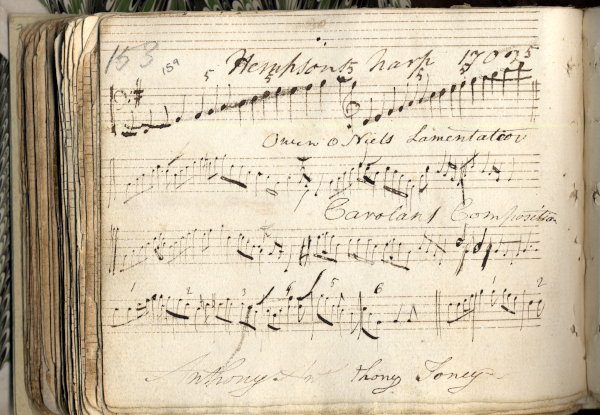 153 159
Hempson's harp 1702
5 5 15 15 5
Owen O Niels Lamentation
Carolans Composition
1 2 3 4 5 6 1 2
Anthony thony Toney